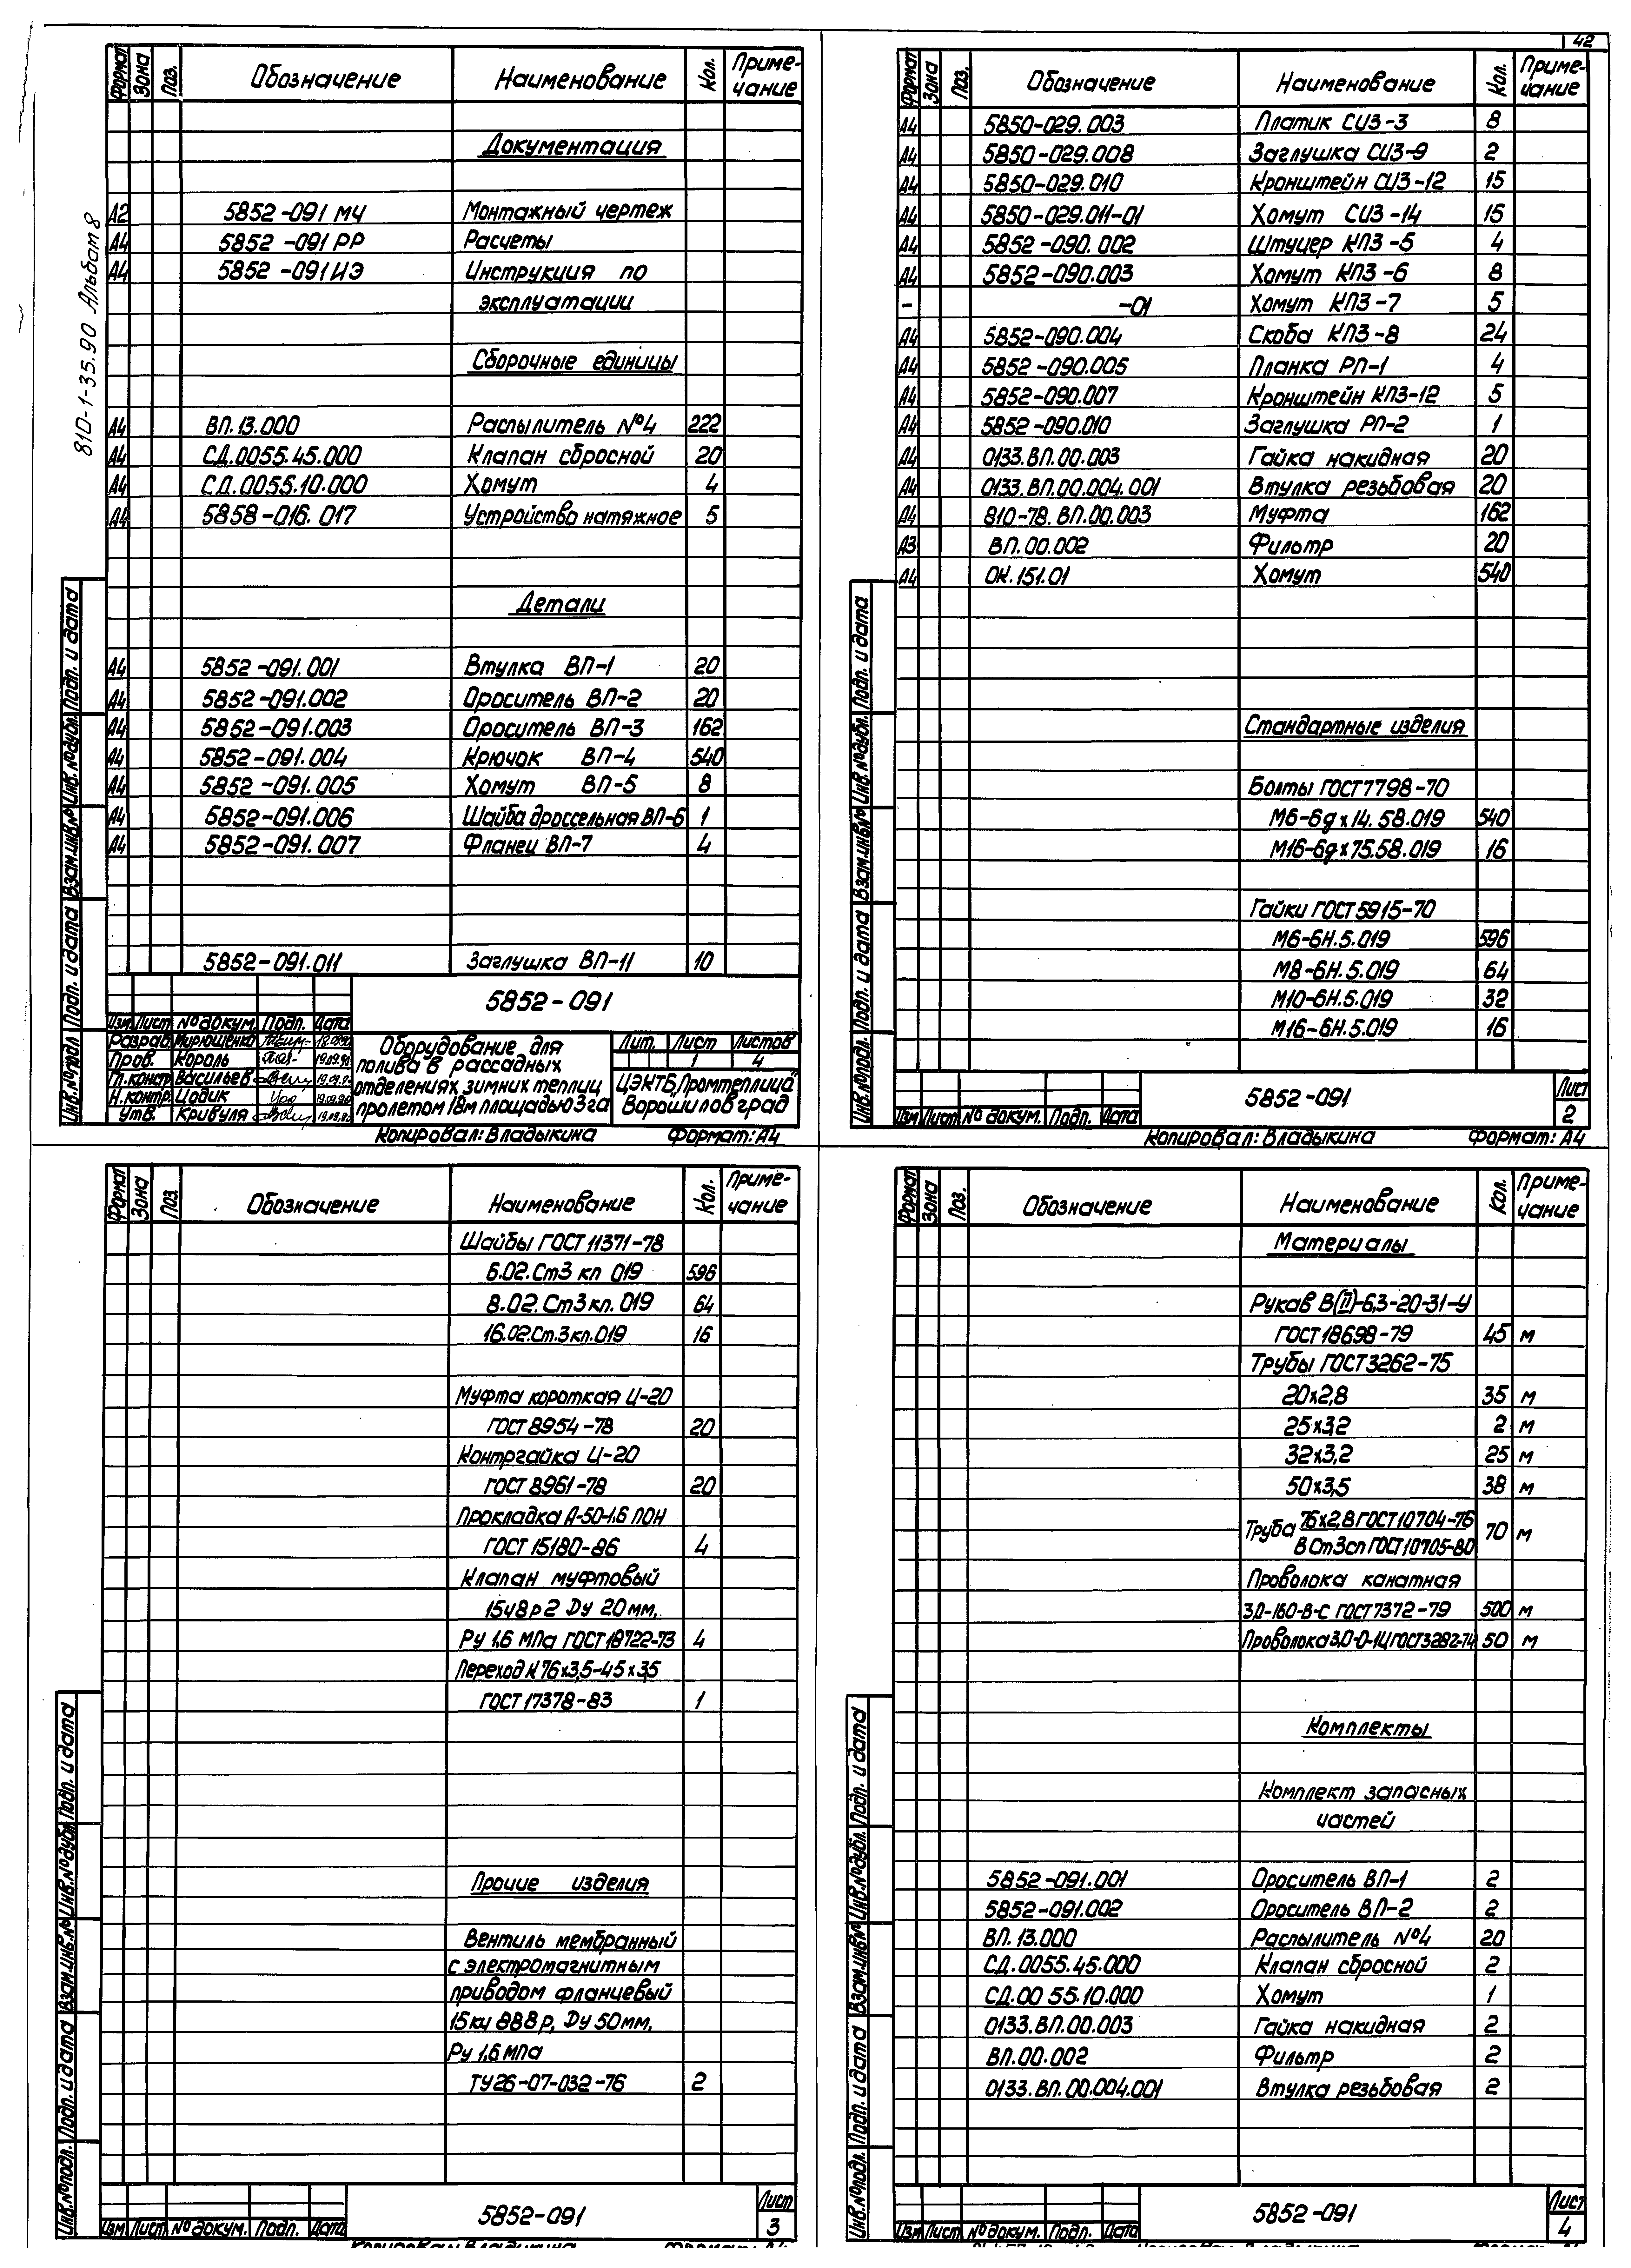 42
810-1-35.90 Альбом 8
Формат Зона Поз. Обозначение Наименование Кол. Приме-
чание
Документация
А2 5852-091 МЧ Монтажный чертеж
А4 5852-091 РР Расчеты
А4 5852-091 ИЭ Инструкция по
эксплуатации
Сборочные единицы
А4 ВП.13.000 Распылитель №4 222
А4 СД.0055.45.000 Клапан сбросной 20
А4 СД.0055.10.000 Хомут 4
А4 5858-016.017 Устройство натяжное 5
Детали
А4 5852-091.001 Втулка ВП-1 20
А4 5852-091.002 Ороситель ВП-2 20
А4 5852-091.003 Ороситель ВП-3 162
А4 5852-091.004 Крючок ВП-4 540
А4 5852-091.005 Хомут ВП-5 8
А4 5852-091.006 Шайба дроссельная ВП-6 1
А4 5852-091.007 Фланец ВП-7 4
5852-091.011 Заглушка ВП-11 10
Инв.№подл. Подп. и дата Взам.инв.№ Инв.№дубл. Подп. и дата
5852-091
Изм Лист № докум. Подп. Дата
Разраб. Мирющенко 18.09.90
Пров. Король 19.09.90
Гл.констр. Васильев 19.09.90
Н.контр. Цовик 19.09.90
Утв. Кривуля 19.09.90
Оборудование для
полива в рассадных
отделениях зимних теплиц
пролетом 18м площадью 3га
Лит. Лист Листов
1 4
ЦЭКТБ„Промтеплица"
Ворошиловград
Копировал: Владыкина Формат: А4
Формат Зона Поз. Обозначение Наименование Кол. Приме-
чание
А4 5850-029.003 Платик СИЗ-3 8
А4 5850-029.008 Заглушка СИЗ-9 2
А4 5850-029.010 Кронштейн СИЗ-12 15
А4 5850-029.011-01 Хомут СИЗ-14 15
А4 5852-090.002 Штуцер КПЗ-5 4
А4 5852-090.003 Хомут КПЗ-6 8
- -01 Хомут КПЗ-7 5
А4 5852-090.004 Скоба КПЗ-8 24
А4 5852-090.005 Планка РП-1 4
А4 5852-090.007 Кронштейн КПЗ-12 5
А4 5852-090.010 Заглушка РП-2 1
А4 0133.ВП.00.003 Гайка накидная 20
А4 0133.ВП.00.004.001 Втулка резьбовая 20
А4 810-78.ВП.00.003 Муфта 162
А3 ВП.00.002 Фильтр 20
А4 ОК.151.01 Хомут 540
Стандартные изделия
Болты ГОСТ7798-70
М6-6gх14.58.019 540
М16-6gх75.58.019 16
Гайки ГОСТ5915-70
М6-6Н.5.019 596
М8-6Н.5.019 64
М10-6Н.5.019 32
М16-6Н.5.019 16
Инв.№подл. Подп. и дата Взам.инв.№ Инв.№дубл. Подп. и дата
Изм Лист № докум. Подп. Дата 5852-091 Лист
2
Копировал: Владыкина Формат: А4
Формат Зона Поз. Обозначение Наименование Кол. Приме-
чание
Шайбы ГОСТ 11371-78
6.02.Ст3 кп 019 596
8.02.Ст3кп.019 64
16.02.Ст.3кп.019 16
Муфта короткая Ц-20
ГОСТ 8954-78 20
Контргайка Ц-20
ГОСТ 8961-78 20
Прокладка А-50-1.6 ПОН
ГОСТ 15180-86 4
Клапан муфтовый
15ч8р2 Ду 20мм,
Ру 1,6 МПа ГОСТ 18722-73 4
Переход К 76х3,5-45х3,5
ГОСТ 17378-83 1
Прочие изделия
Вентиль мембранный
с электромагнитным
приводом фланцевый
15кч 888р, Ду 50мм,
Ру 1,6 МПа
ТУ26-07-032-76 2
Инв.№подл. Подп. и дата Взам.инв.№ Инв.№дубл. Подп. и дата
Изм Лист № докум. Подп. Дата 5852-091 Лист
3
Копировал: Владыкина Формат: А4
Формат Зона Поз. Обозначение Наименование Кол. Приме-
чание
Материалы
Рукав В(II)-6,3-20-31-У
ГОСТ 18698-79 45 м
Трубы ГОСТ3262-75
20х2,8 35 м
25х3,2 2 м
32х3,2 25 м
50х3,5 38 м
Труба 76х2,8 ГОСТ 10704-76
В Ст3сп ГОСТ 10705-80 70 м
Проволока канатная
3,0-160-В-С ГОСТ 7372-79 500 м
Проволока 3,0-О-1Ц ГОСТ3282-74 50 м
Комплекты
Комплект запасных
частей
5852-091.001 Ороситель ВП-1 2
5852-091.002 Ороситель ВП-2 2
ВП.13.000 Распылитель №4 20
СД.0055.45.000 Клапан сбросной 2
СД.0055.10.000 Хомут 1
0133.ВП.00.003 Гайка накидная 2
ВП.00.002 Фильтр 2
0133.ВП.00.004.001 Втулка резьбовая 2
Инв.№подл. Подп. и дата Взам.инв.№ Инв.№дубл. Подп. и дата
Изм Лист № докум. Подп. Дата 5852-091 Лист
4